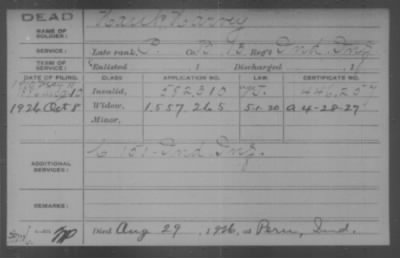 DEAD
NAME OF SOLDIER: Hauk Harvey
SERVICE: Late rank, P. Co. B, 13 Reg't Ind. Inf.
TERM OF SERVICE: Enlisted , 1 Discharged , 1
DATE OF FILING. CLASS. APPLICATION NO. LAW. CERTIFICATE NO.
Invalid, 552,310 446,257
1926 Oct 8 Widow, 1.557.265 5-1-20 A 4-28-27
Minor,
ADDITIONAL SERVICES: C 151 Ind. Inf.
REMARKS:
Died Aug 29, 1926, at Peru, Ind.